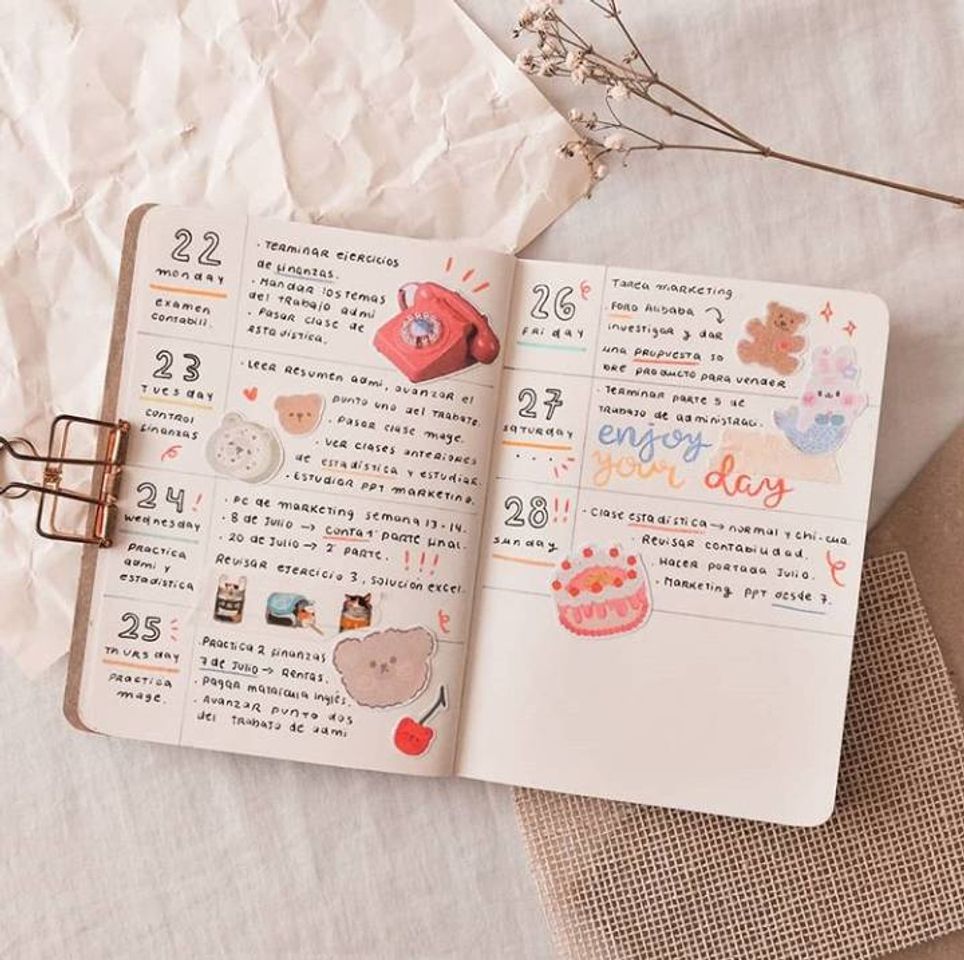 22
monday
examen
contabili.
· Terminar ejercicios
de finanzas.
· Mandar los temas
del trabajo admi
· Pasar clase de
estadística.
23
Tuesday
control
finanzas
· Leer resumen admi, avanzar el
punto uno del trabajo.
· Pasar clase mage.
· Ver clases anteriores
de estadística y estudiar.
· Estudiar PPT marketing.
24!
wednesday
practica
admi y
estadística
· PC de marketing semana 13-14.
· 8 de Julio → conta 1° parte final.
· 20 de Julio → 2° parte. !!!
Revisar ejercicio 3, solución excel.
25
Thursday
practica
mage.
· Practica 2 finanzas
7 de Julio → Rentas.
· Pagar matrícula inglés.
· Avanzar punto dos
del trabajo de admi
26
Friday
Tarea marketing
Foro Alibaba
investigar y dar
una propuesta so
bre producto para vender
27
saturday
...
· Terminar parte 5 de
trabajo de administraci.
enjoy
your day
28!!
sunday
· Clase estadística → normal y chi-cua.
· Revisar contabilidad.
· Hacer portada Julio.
· Marketing PPT desde 7.